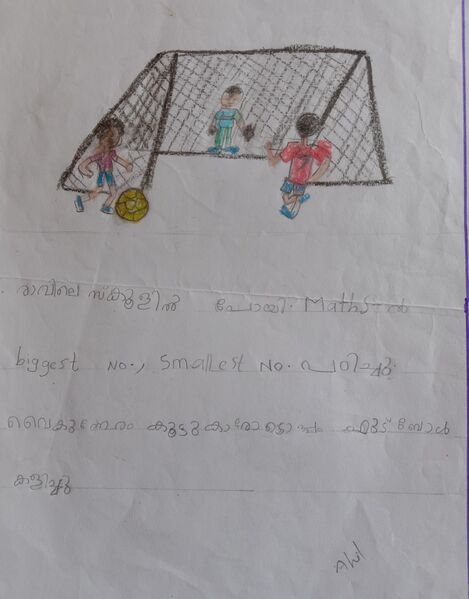 രാവിലെ സ്കൂളിൽ പോയി. Maths-ൽ
biggest No., Smallest No. പഠിച്ചു.
വൈകുന്നേരം കൂട്ടുകാരോടൊപ്പം ഫുട്ബോൾ
കളിച്ചു
7